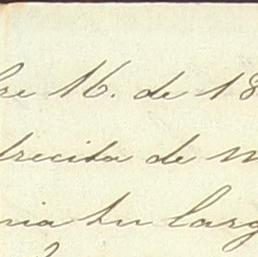 bre 16. de 18
drecita de m
nia tu larg